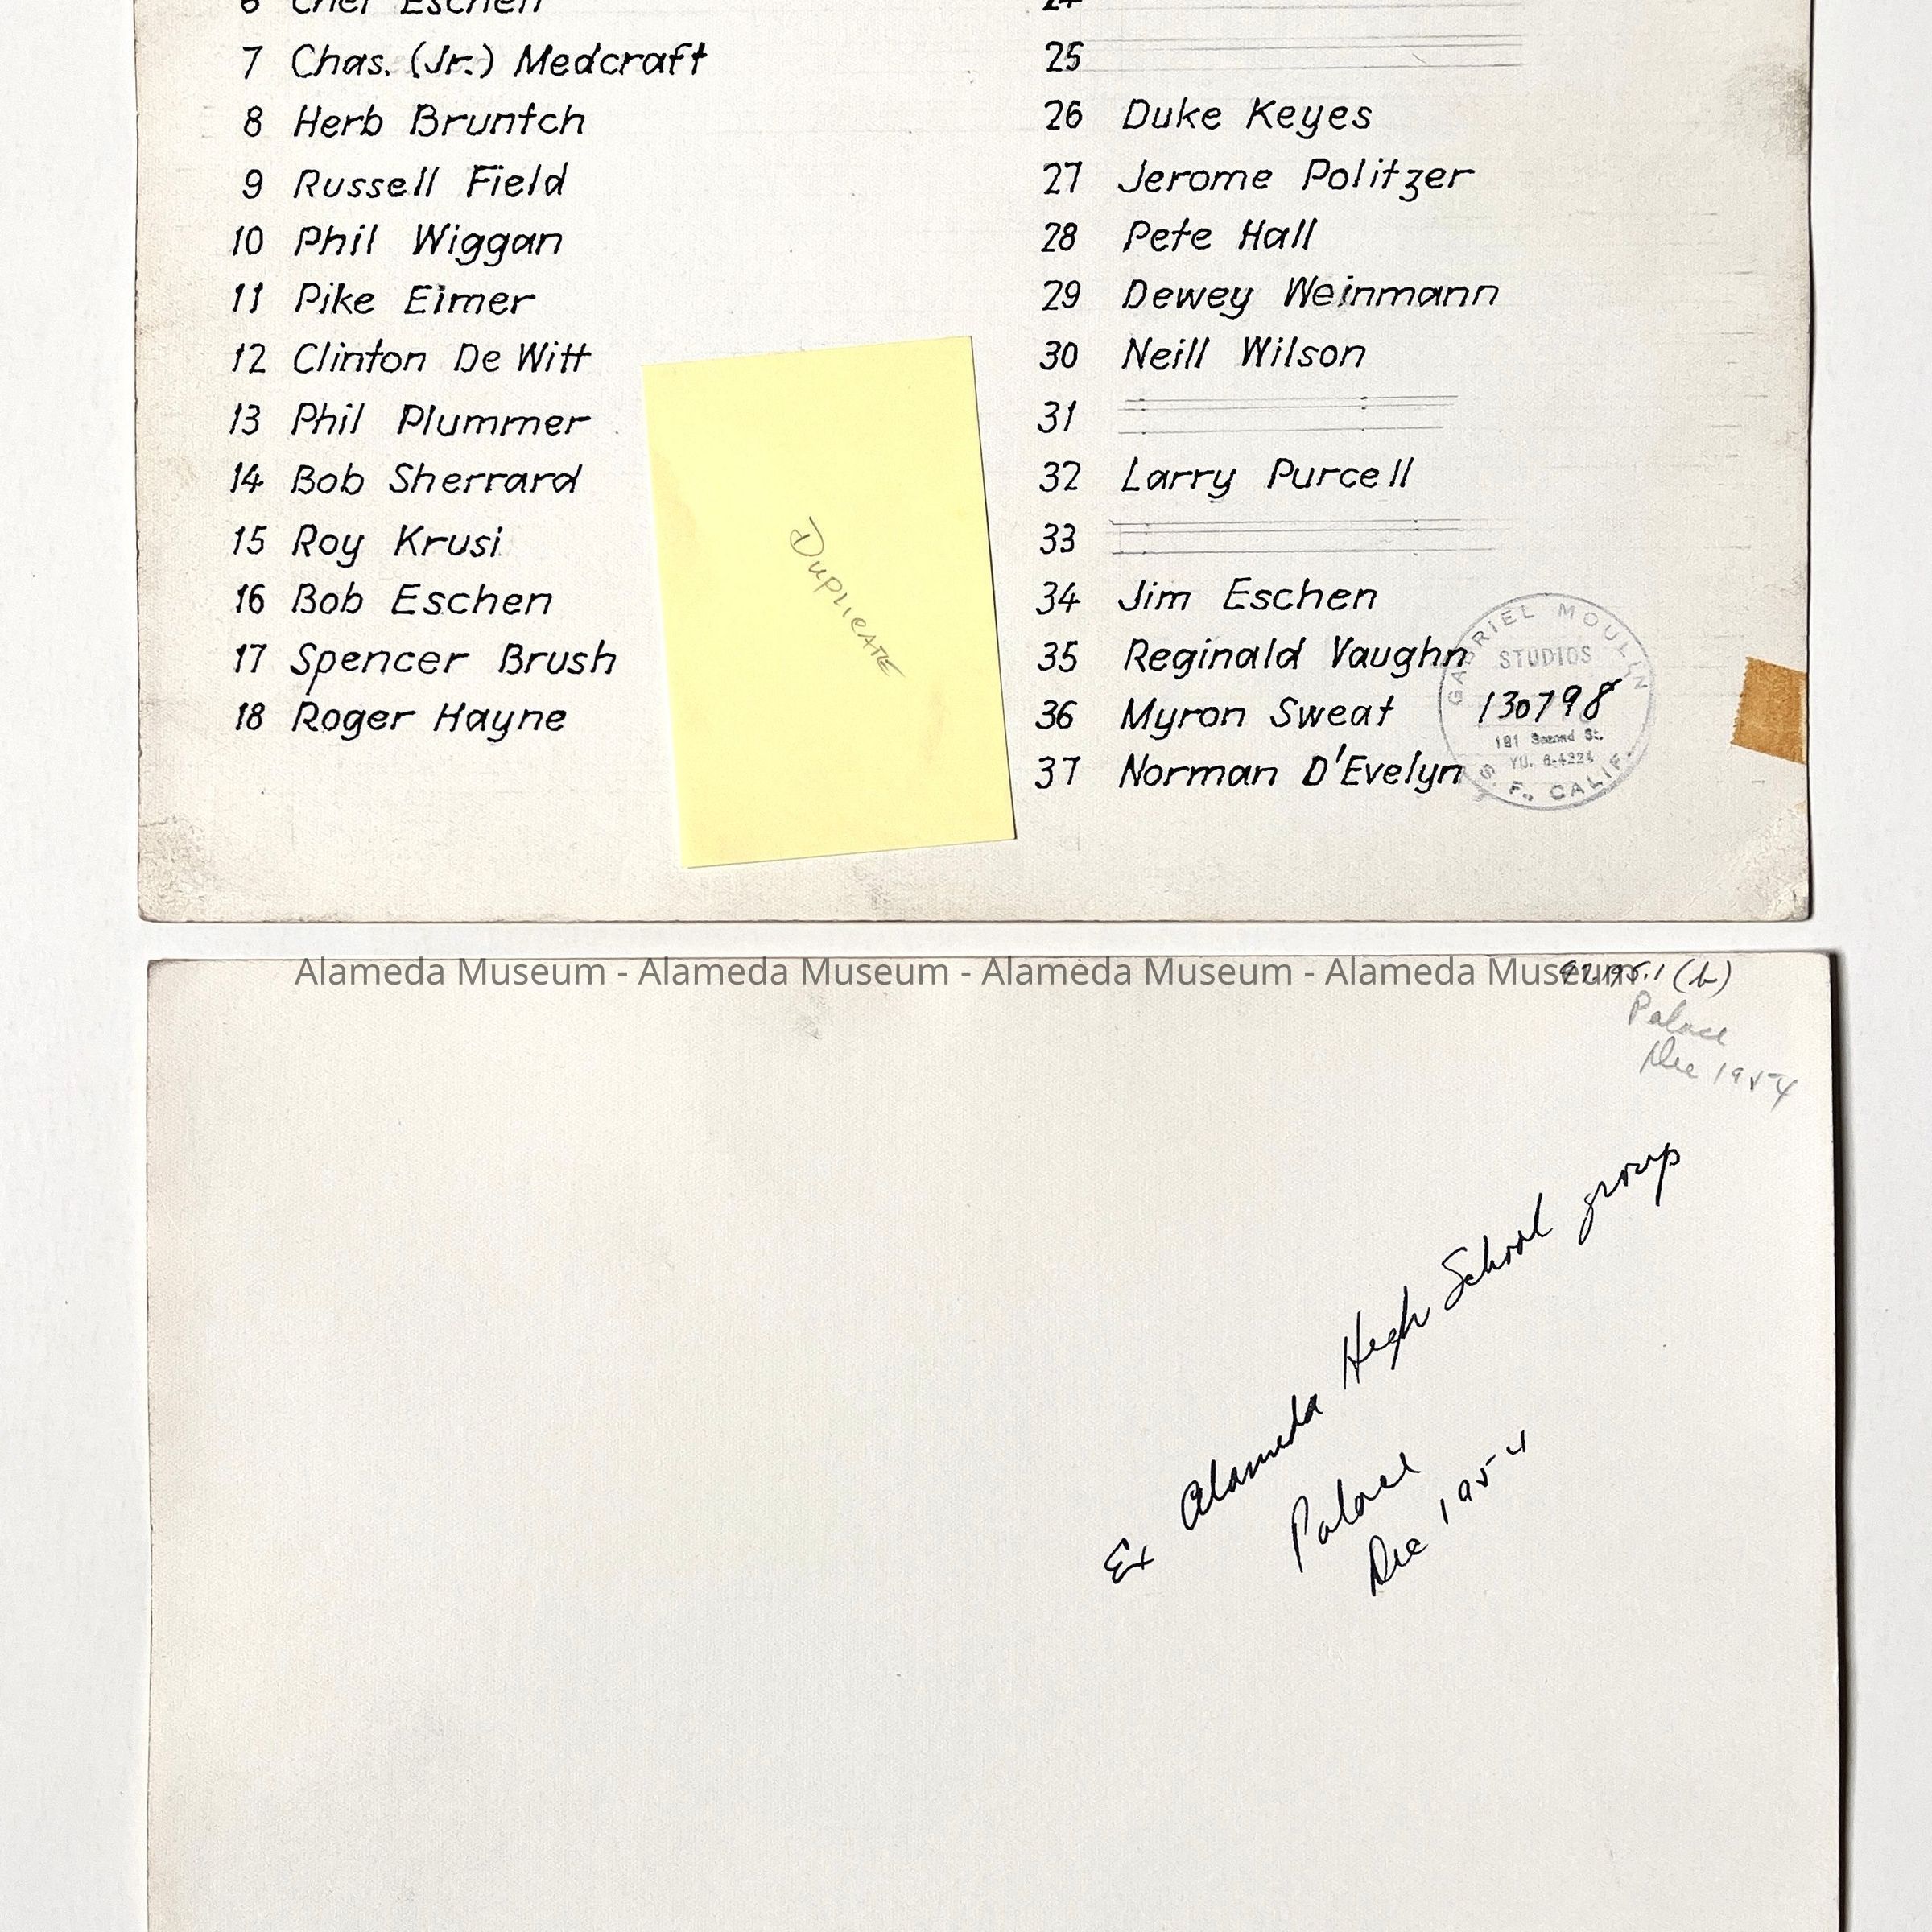 6 Chet Eschen
7 Chas. (Jr.) Medcraft
8 Herb Bruntch
9 Russell Field
10 Phil Wiggan
11 Pike Eimer
12 Clinton De Witt
13 Phil Plummer
14 Bob Sherrard
15 Roy Krusi
16 Bob Eschen
17 Spencer Brush
18 Roger Hayne
24
25
26 Duke Keyes
27 Jerome Politzer
28 Pete Hall
29 Dewey Weinmann
30 Neill Wilson
31
32 Larry Purcell
33
34 Jim Eschen
35 Reginald Vaughn
36 Myron Sweat
37 Norman D'Evelyn
DUPLICATE
GABRIEL MOULIN
STUDIOS
130798
181 Second St.
YU. 6-4224
S. F., CALIF.
Alameda Museum - Alameda Museum - Alameda Museum - Alameda Museum
(b)
Palace
Dec 1954
Ex Alameda High School group
Palace
Dec 1954